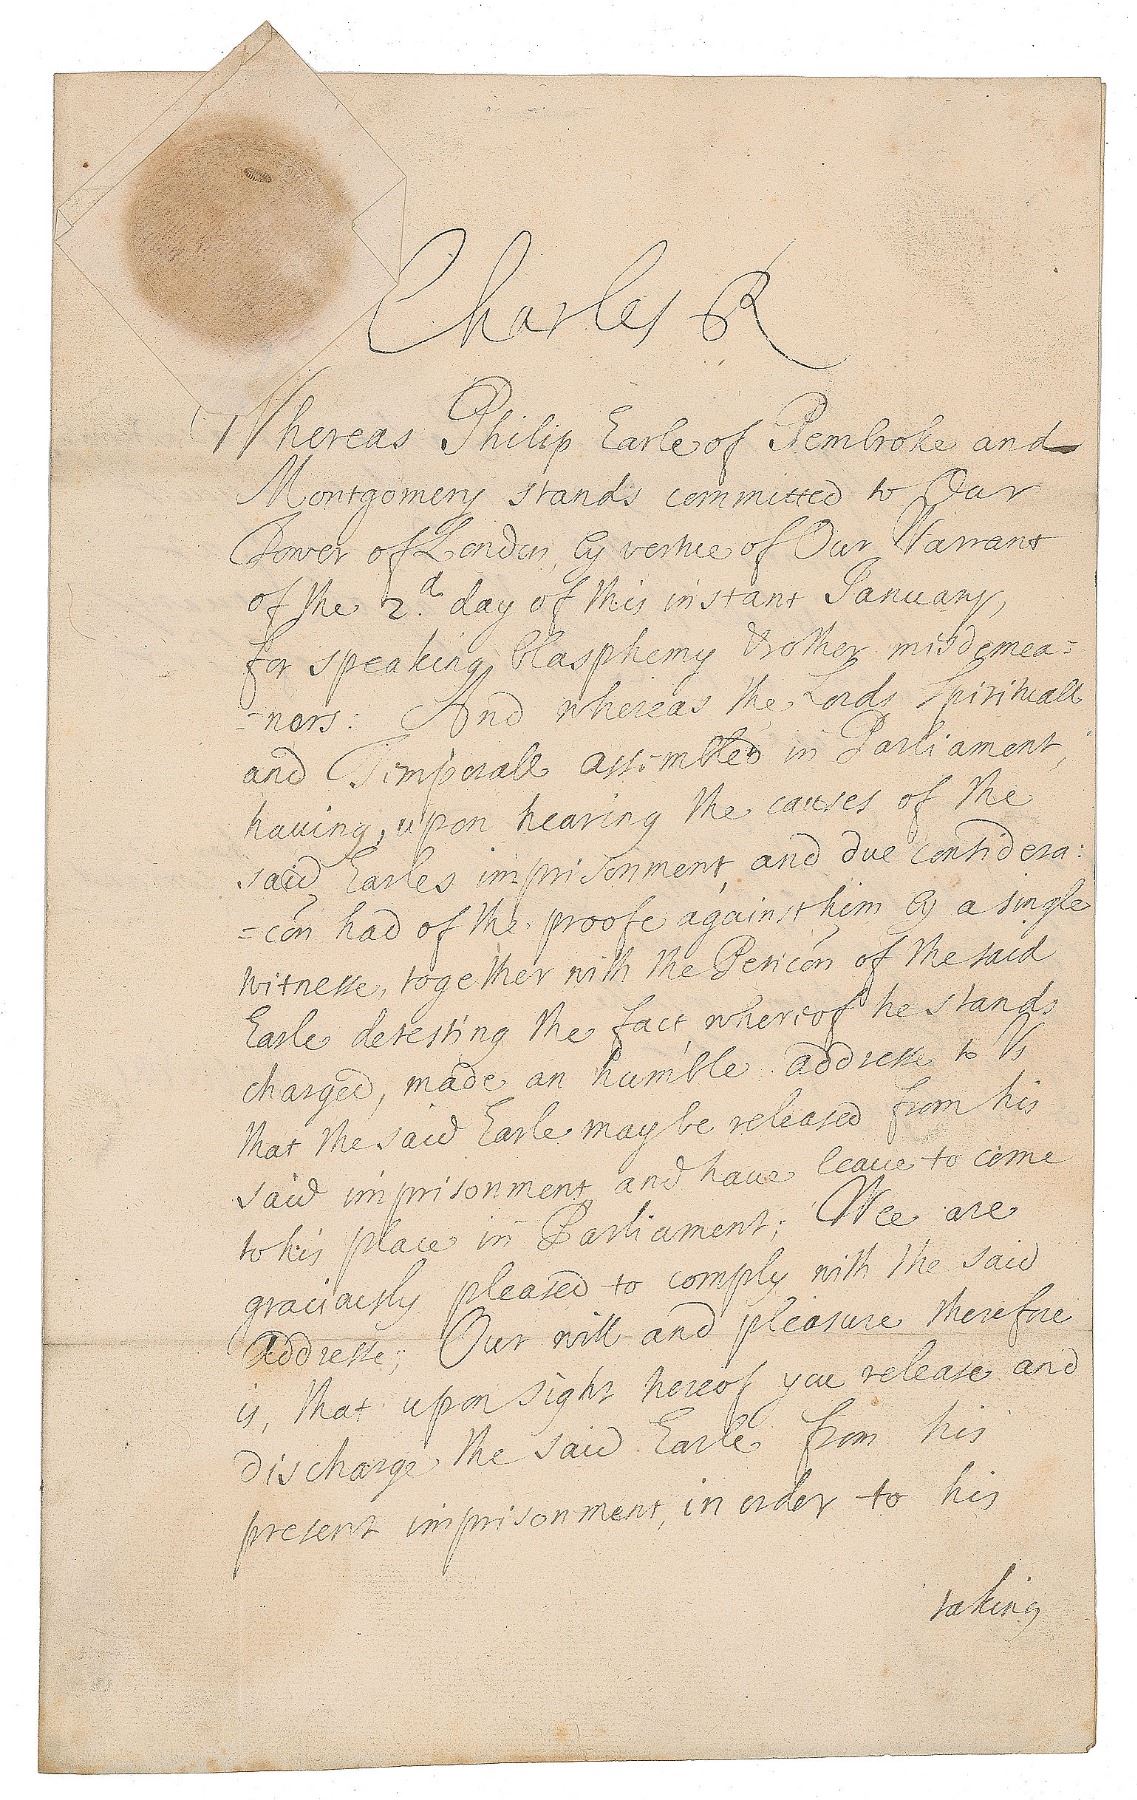 Charles R
Whereas Philip Earle of Pembroke and
Montgomery stands committed to Our
Tower of London, by vertue of Our Warrant
of the 2.d day of this instant January,
for speaking blasphemy & other misdemea=
=nors: And whereas the Lords Spirituall
and Temporall assembled in Parliament,
hauing, upon hearing the causes of the
said Earles imprisonment, and due considera:
=cõn had of the proofe against him by a single
witnesse, together with the Peticõn of the said
Earle detesting the fact whereof he stands
charged, made an humble addresse to Us
that the said Earle may be released from his
said imprisonment and haue leaue to come
to his place in Parliament; Wee are
graciously pleased to comply with the said
Addresse; Our will and pleasure therefore
is, that upon sight hereof you release and
discharge the said Earle from his
present imprisonment, in order to his
taking